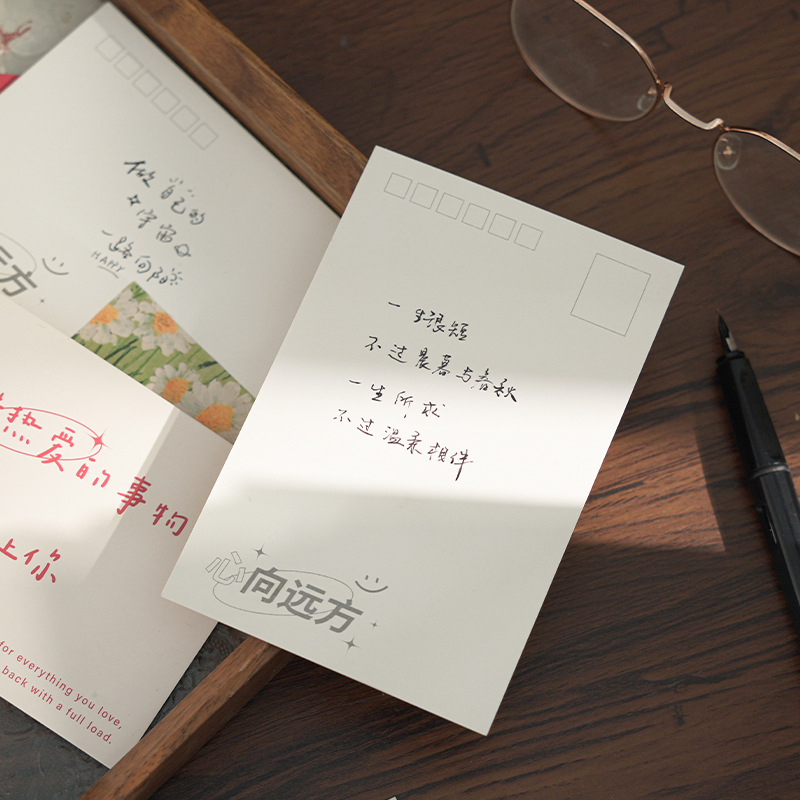 做自己的
小宇宙
一路向阳
HAPPY
远方
热爱的事物
上你
for everything you love,
back with a full load.
一生很短
不过晨暮与春秋
一生所求
不过温柔相伴
心向远方